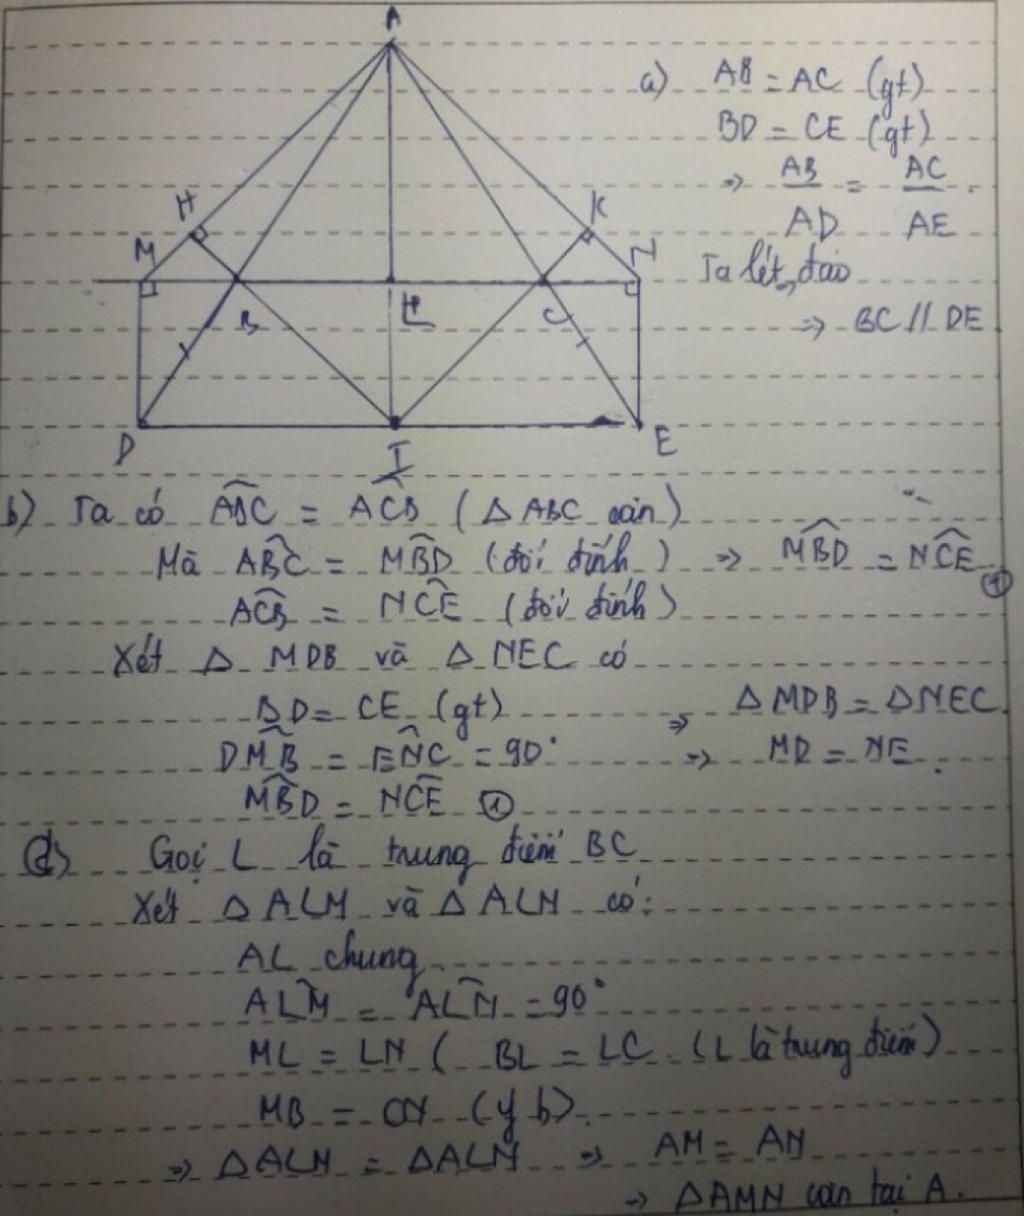 A
a) AB = AC (gt)
BD = CE (gt)
=> AB/AD = AC/AE.
H
K
M
N
Ta lét đảo
B
L
C
=> BC // DE
D
I
E
b) Ta có ABC^ = ACB^ (Δ ABC cân)
Mà ABC^ = MBD^ (đối đỉnh) => MBD^ = NCE^ ①
ACB^ = NCE^ (đối đỉnh)
Xét Δ MDB và Δ NEC có
BD = CE (gt) => Δ MDB = Δ NEC.
DMB^ = ENC^ = 90° => MD = NE.
MBD^ = NCE^ ①
d) Gọi L là trung điểm BC
Xét Δ ALM và Δ ALN có:
AL chung
ALM^ = ALN^ = 90°
ML = LN ( BL = LC (L là trung điểm)
MB = CN (ý b)
=> Δ ALM = Δ ALN => AM = AN
=> Δ AMN cân tại A.